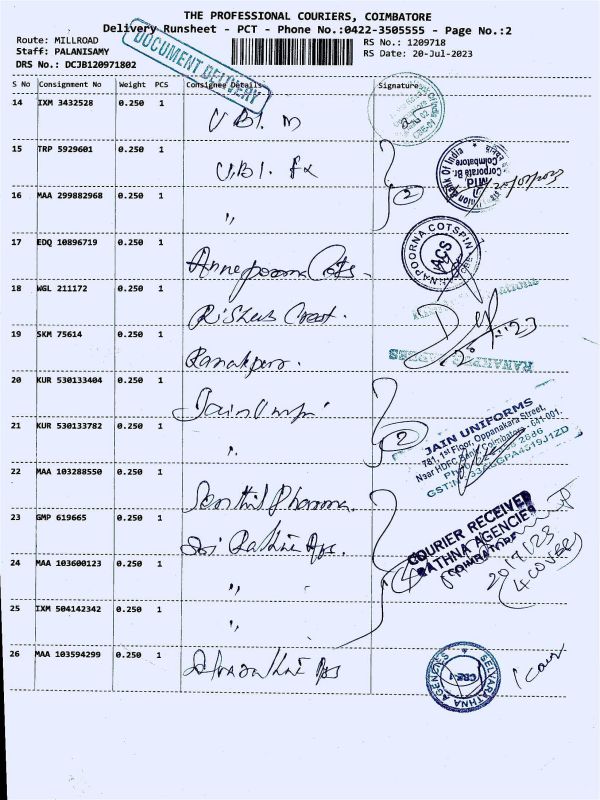 THE PROFESSIONAL COURIERS, COIMBATORE
Delivery Runsheet - PCT - Phone No.:0422-3505555 - Page No.:2
Route: MILLROAD
RS No.: 1209718
Staff: PALANISAMY
RS Date: 20-Jul-2023
DRS No.: DCJB120971802
DOCUMENT DELIVERY
S No Consignment No Weight PCS Consignee Details Signature
14 IXM 3432528 0.250 1
U.B.I. m
15 TRP 5929601 0.250 1
U.B.I. fx
2
Union Bank Of India
Mid Corporate Br.
Coimbatore
16 MAA 299882968 0.250 1
"
17 EDQ 10896719 0.250 1
Annapoorna Cots
ANNAPOORNA COTSPIN
ACS
18 WGL 211172 0.250 1
Rishab Creat.
19 SKM 75614 0.250 1
Ranakpur.
20 KUR 530133404 0.250 1
Jain Unifi
2
JAIN UNIFORMS
781, 1st Floor, Oppanakara Street,
Near HDFC Bank, Coimbatore - 641 001.
21 KUR 530133782 0.250 1
"
22 MAA 103288550 0.250 1
Senthil Pharma
23 GMP 619665 0.250 1
Sri Rathna Aps.
4
COURIER RECEIVED
RATHNA AGENCIES
COIMBATORE
20/7/23
(4 covers)
24 MAA 103600123 0.250 1
"
25 IXM 504142342 0.250 1
"
26 MAA 103594299 0.250 1
Selvarathna Aps
SELVARATHNA AGENCIES
CBE-1
1 cover